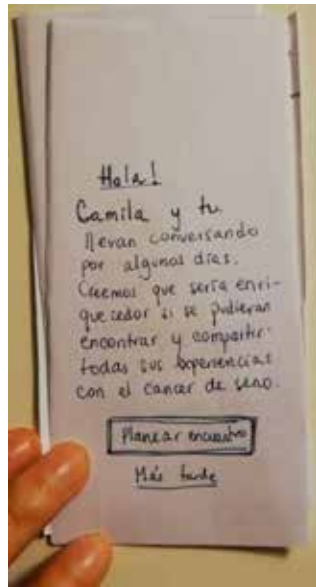 Hola!
Camila y tu
llevan conversando
por algunos días.
Creemos que sería enri-
quecedor si se pudieran
encontrar y compartir
todas sus experiencias
con el cancer de seno.
Planear encuentro
Más tarde